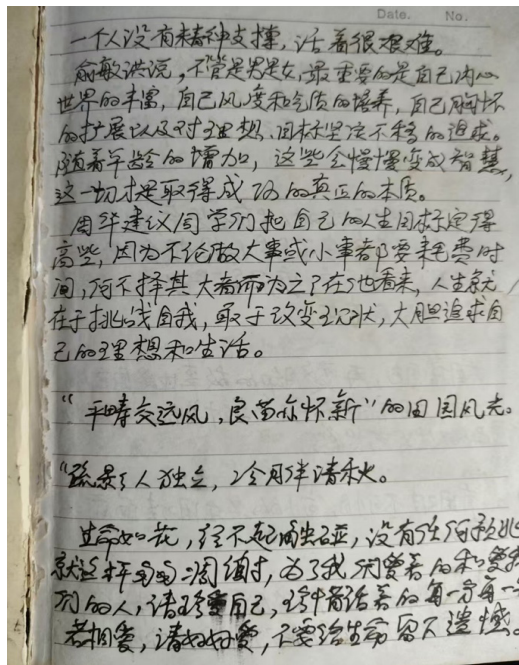 Date. No.
一个人没有精神支撑，活着很艰难。
俞敏洪说，不管是男是女，最重要的是自己内心
世界的丰富，自己风度和气质的培养，自己胸怀
的扩展以及对理想、目标坚定不移的追求。
随着年龄的增加，这些会慢慢变成智慧，
这一切才是取得成功的真正的本质。
周华建议同学们把自己的人生目标定得
高些，因为不论做大事或小事都要耗费时
间，何不择其大者而为之？在他看来，人生就
在于挑战自我，敢于改变现状，大胆追求自
己的理想和生活。
“平畴交远风，良苗亦怀新”的田园风光。
“疏影人独立，冷月伴清秋。
生命如花，经不起触碰，没有任何预兆
就这样 凋谢，为了我们爱着的和爱我
们的人，请珍重自己，珍惜活着的每一分每一
若相爱，请好好爱，不要给生命留下遗憾。